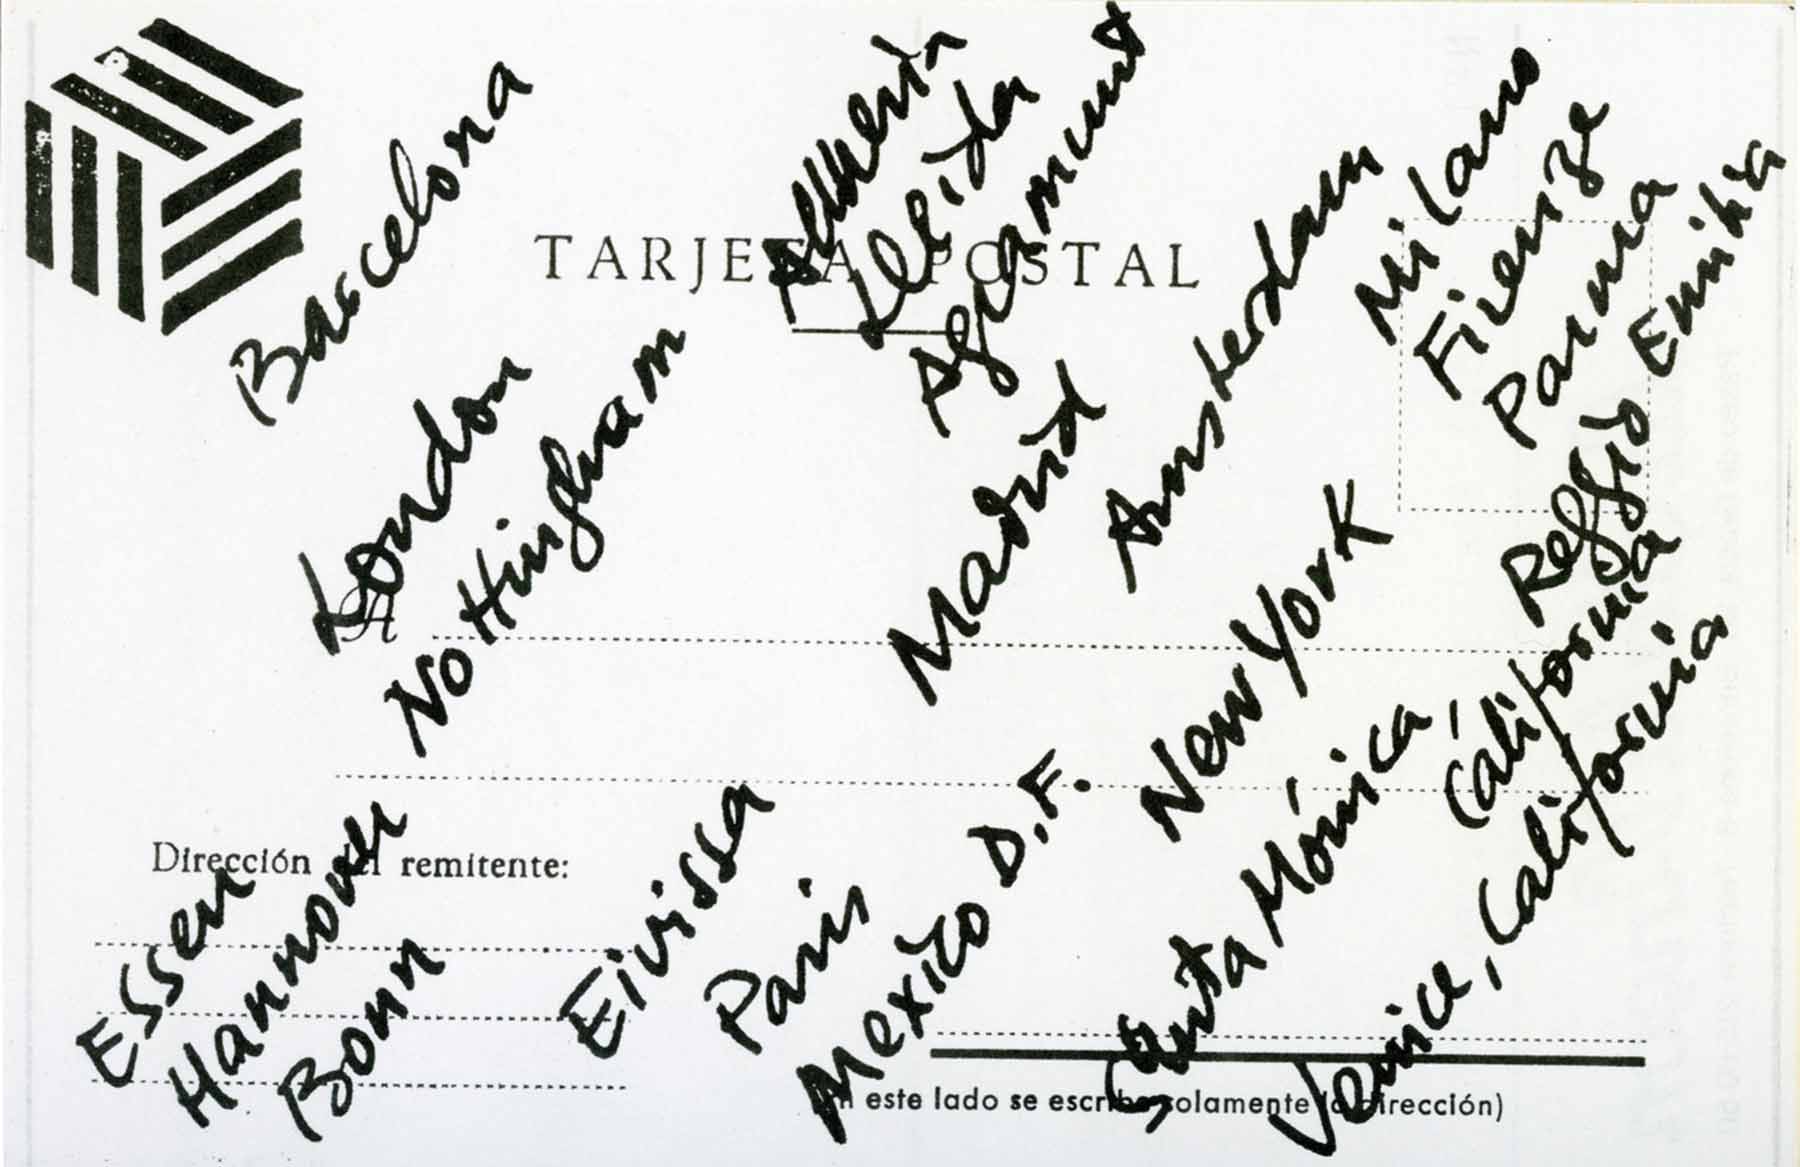 Barcelona
Almeria
Lleida
Agramunt
Amsterdam
Milano
Firenze
Parma
Reggio Emilia
TARJETA POSTAL
London
Nottingham
A
Madrid
New York
Santa Mónica, California
Venice, California
Dirección del remitente:
Essen
Hannover
Bonn
Eivissa
Paris
Mexico D.F.
(En este lado se escribe solamente la dirección)